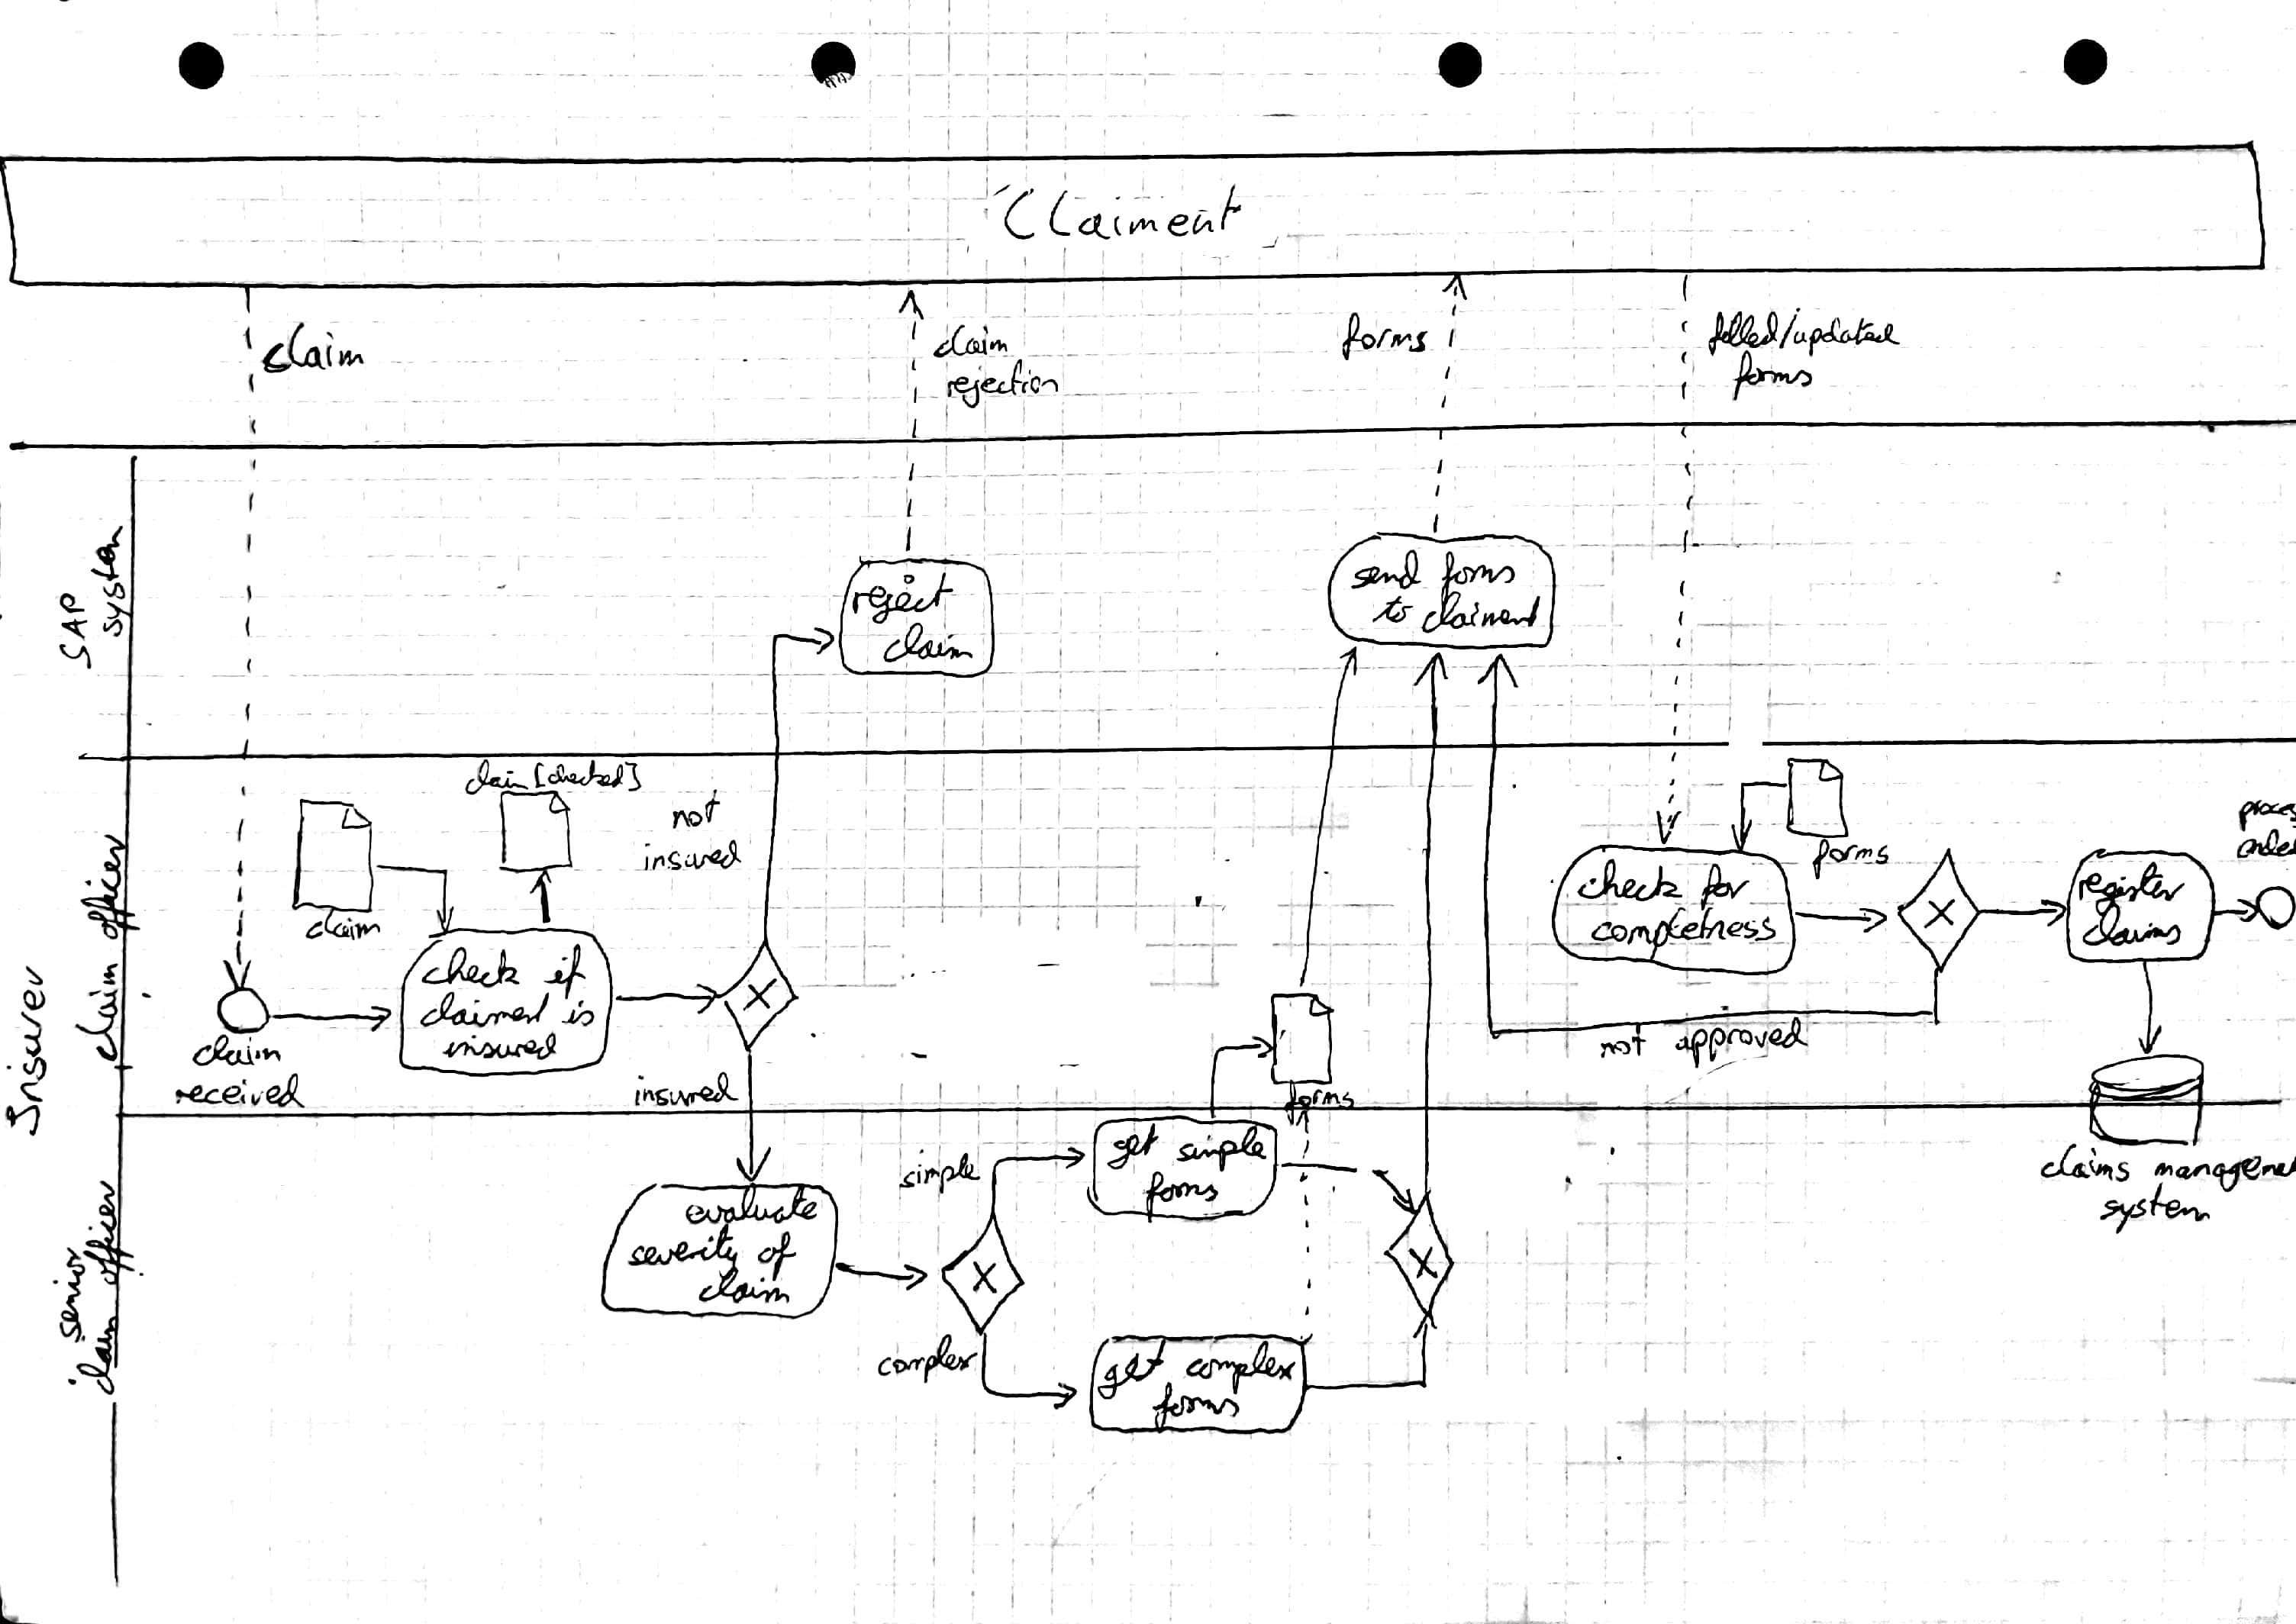 Claiment
claim
claim
rejection
forms
filled/updated
forms
SAP
system
reject
claim
send forms
to claiment
Insurer
claim officer
claim [checked]
not
insured
claim
forms
check if
claiment is
insured
claim
received
insured
X
check for
completness
X
register
claims
not approved
forms
claims
system
senior
claim officer
evaluate
severity of
claim
X
simple
complex
get simple
forms
get complex
forms
X